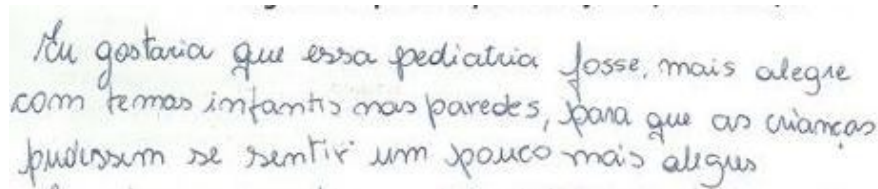 Eu gostaria que essa pediatria fosse, mais alegre
com temas infantis nas paredes, para que as crianças
pudessem se sentir um pouco mais alegres